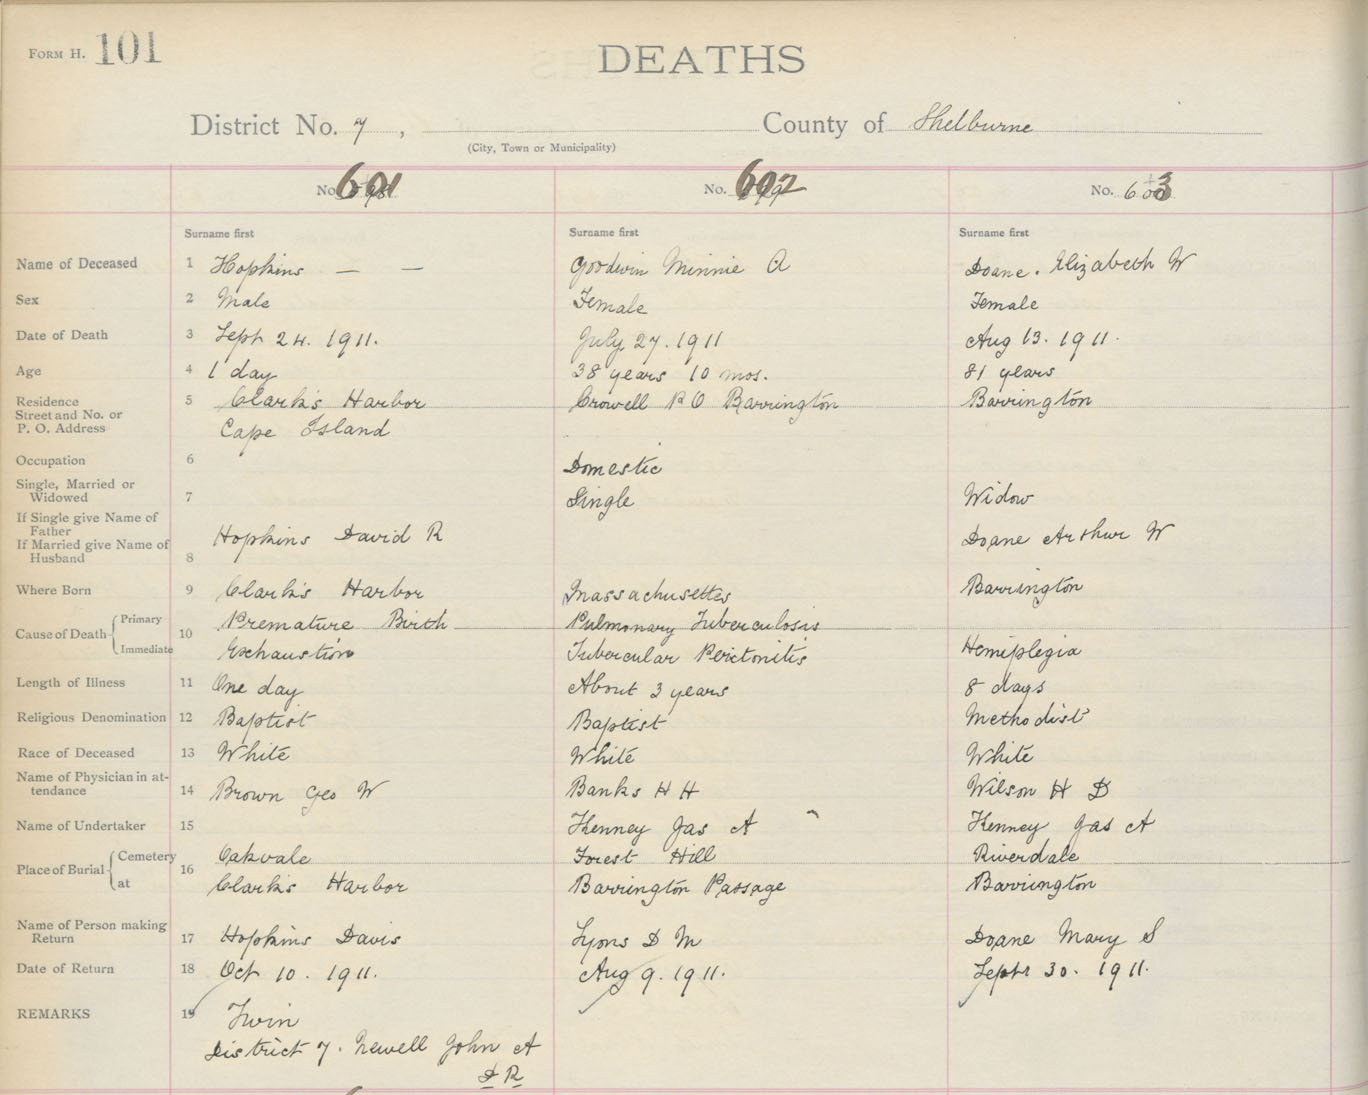 FORM H. 101
DEATHS
District No. 7, County of Shelburne
(City, Town or Municipality)
No. 601 No. 602 No. 603
Surname first Surname first Surname first
Name of Deceased 1 Hopkins — — Goodwin Minnie A Doane. Elizabeth W
Sex 2 Male Female Female
Date of Death 3 Sept 24. 1911. July 27. 1911 Aug 13. 1911.
Age 4 1 day 38 years 10 mos. 81 years
Residence 5 Clark's Harbor Crowell P O Barrington Barrington
Street and No. or
P. O. Address Cape Island
Occupation 6 Domestic
Single, Married or
Widowed 7 Single Widow
If Single give Name of
Father
Hopkins David R Doane Arthur W
If Married give Name of
Husband 8
Where Born 9 Clark's Harbor Massachusettes Barrington
Cause of Death 10
Primary Premature Birth Pulmonary Tuberculosis
Immediate Exhaustion Tubercular Peritonitis Hemiplegia
Length of Illness 11 One day About 3 years 8 days
Religious Denomination 12 Baptist Baptist Methodist
Race of Deceased 13 White White White
Name of Physician in at-
tendance 14 Brown Geo W Banks H H Wilson H D
Name of Undertaker 15 Kenney Jas A Kenney Jas A
Place of Burial 16
Cemetery Oakvale Forest Hill Riverdale
at Clark's Harbor Barrington Passage Barrington
Name of Person making
Return 17 Hopkins Davis Lyons D M Doane Mary S
Date of Return 18 Oct 10. 1911. Aug 9. 1911. Septr 30. 1911.
REMARKS 19 Twin
District 7. Newell John A
D R